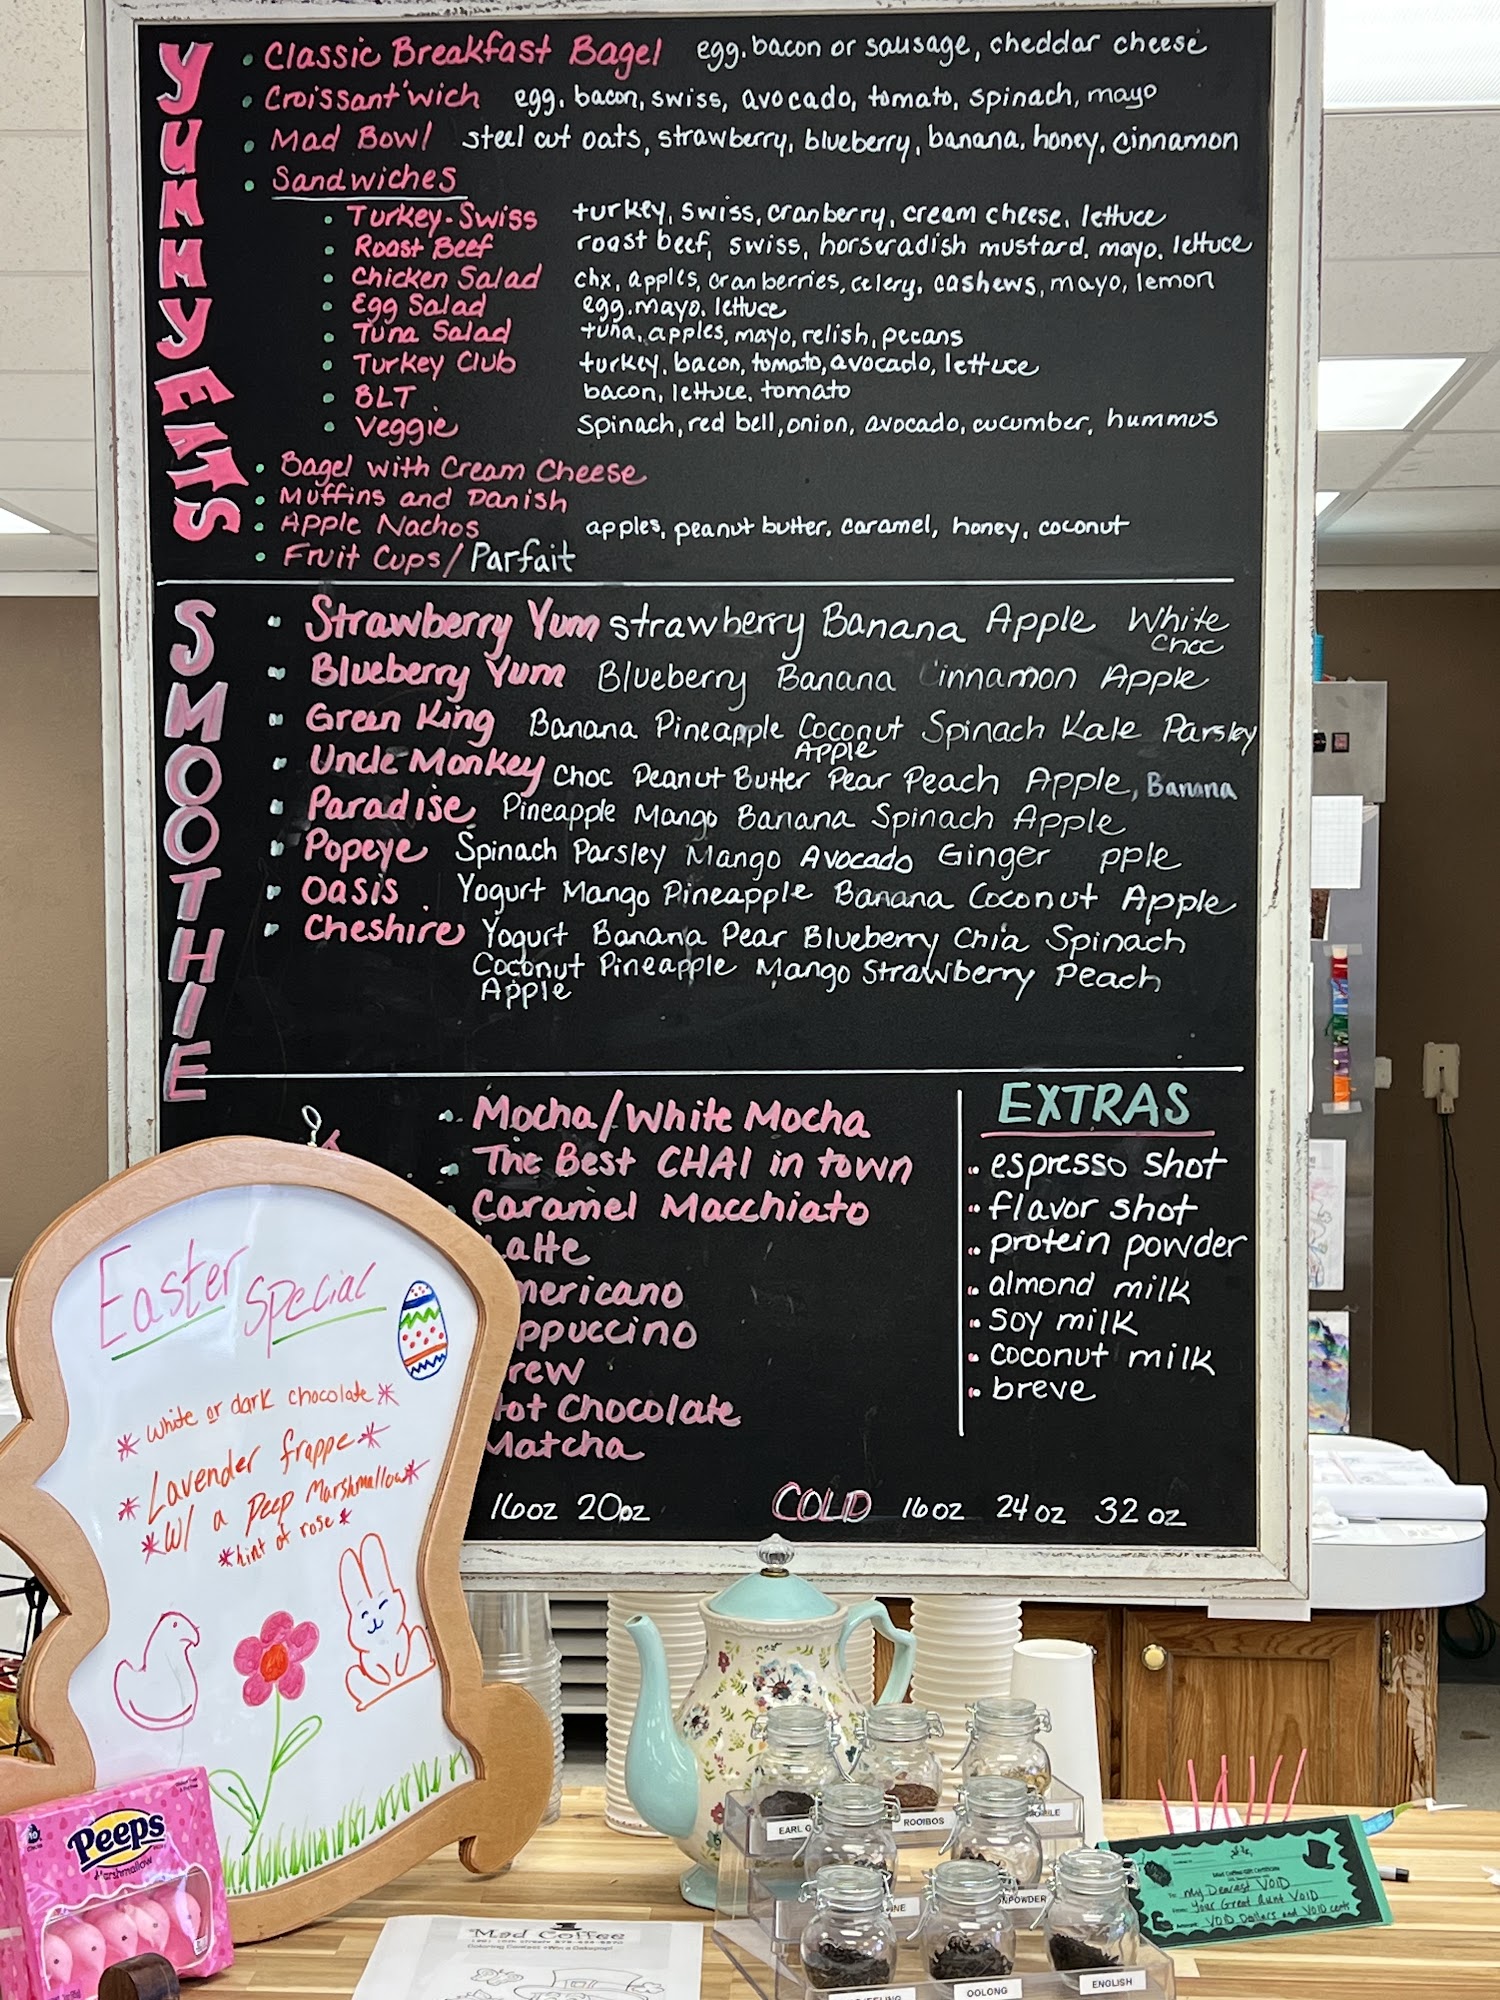 YUMMY EATS
• Classic Breakfast Bagel egg, bacon or sausage, cheddar cheese
• Croissant'wich egg, bacon, swiss, avocado, tomato, spinach, mayo
• Mad Bowl steel cut oats, strawberry, blueberry, banana, honey, cinnamon
• Sandwiches
• Turkey-Swiss turkey, swiss, cranberry, cream cheese, lettuce
• Roast Beef roast beef, swiss, horseradish mustard, mayo, lettuce
• Chicken Salad chx, apples, cranberries, celery, cashews, mayo, lemon
• Egg Salad egg, mayo, lettuce
• Tuna Salad tuna, apples, mayo, relish, pecans
• Turkey Club turkey, bacon, tomato, avocado, lettuce
• BLT bacon, lettuce, tomato
• Veggie spinach, red bell, onion, avocado, cucumber, hummus
• Bagel with Cream Cheese
• Muffins and Danish
• Apple Nachos apples, peanut butter, caramel, honey, coconut
• Fruit Cups/Parfait
SMOOTHIE
• Strawberry Yum strawberry Banana Apple White
Choc
• Blueberry Yum Blueberry Banana innamon Apple
• Green King Banana Pineapple Coconut Spinach Kale Parsley
Apple
• Uncle Monkey Choc Peanut Butter Pear Peach Apple, Banana
• Paradise Pineapple Mango Banana Spinach Apple
• Popeye Spinach Parsley Mango Avocado Ginger pple
• Oasis Yogurt Mango Pineapple Banana Coconut Apple
• Cheshire Yogurt Banana Pear Blueberry Chia Spinach
Coconut Pineapple Mango Strawberry Peach
Apple
• Mocha/White Mocha
• The Best CHAI in town
• Caramel Macchiato
Latte
mericano
ppuccino
rew
Hot Chocolate
Matcha
16oz 20oz
COLD 16oz 24oz 32oz
EXTRAS
• espresso shot
• flavor shot
• protein powder
• almond milk
• soy milk
• coconut milk
• breve
Easter Special
*white or dark chocolate*
*Lavender frappe*
*w/ a Peep Marshmallow*
*hint of rose*
Peeps
Marshmallow
Mad Coffee
EARL G
ROOIBOS
NPOWDER
OOLONG
ENGLISH
Mad Coffee Gift Certificate
My Dearest VOID
Your Great Aunt VOID
VOID Dollars and VOID cents